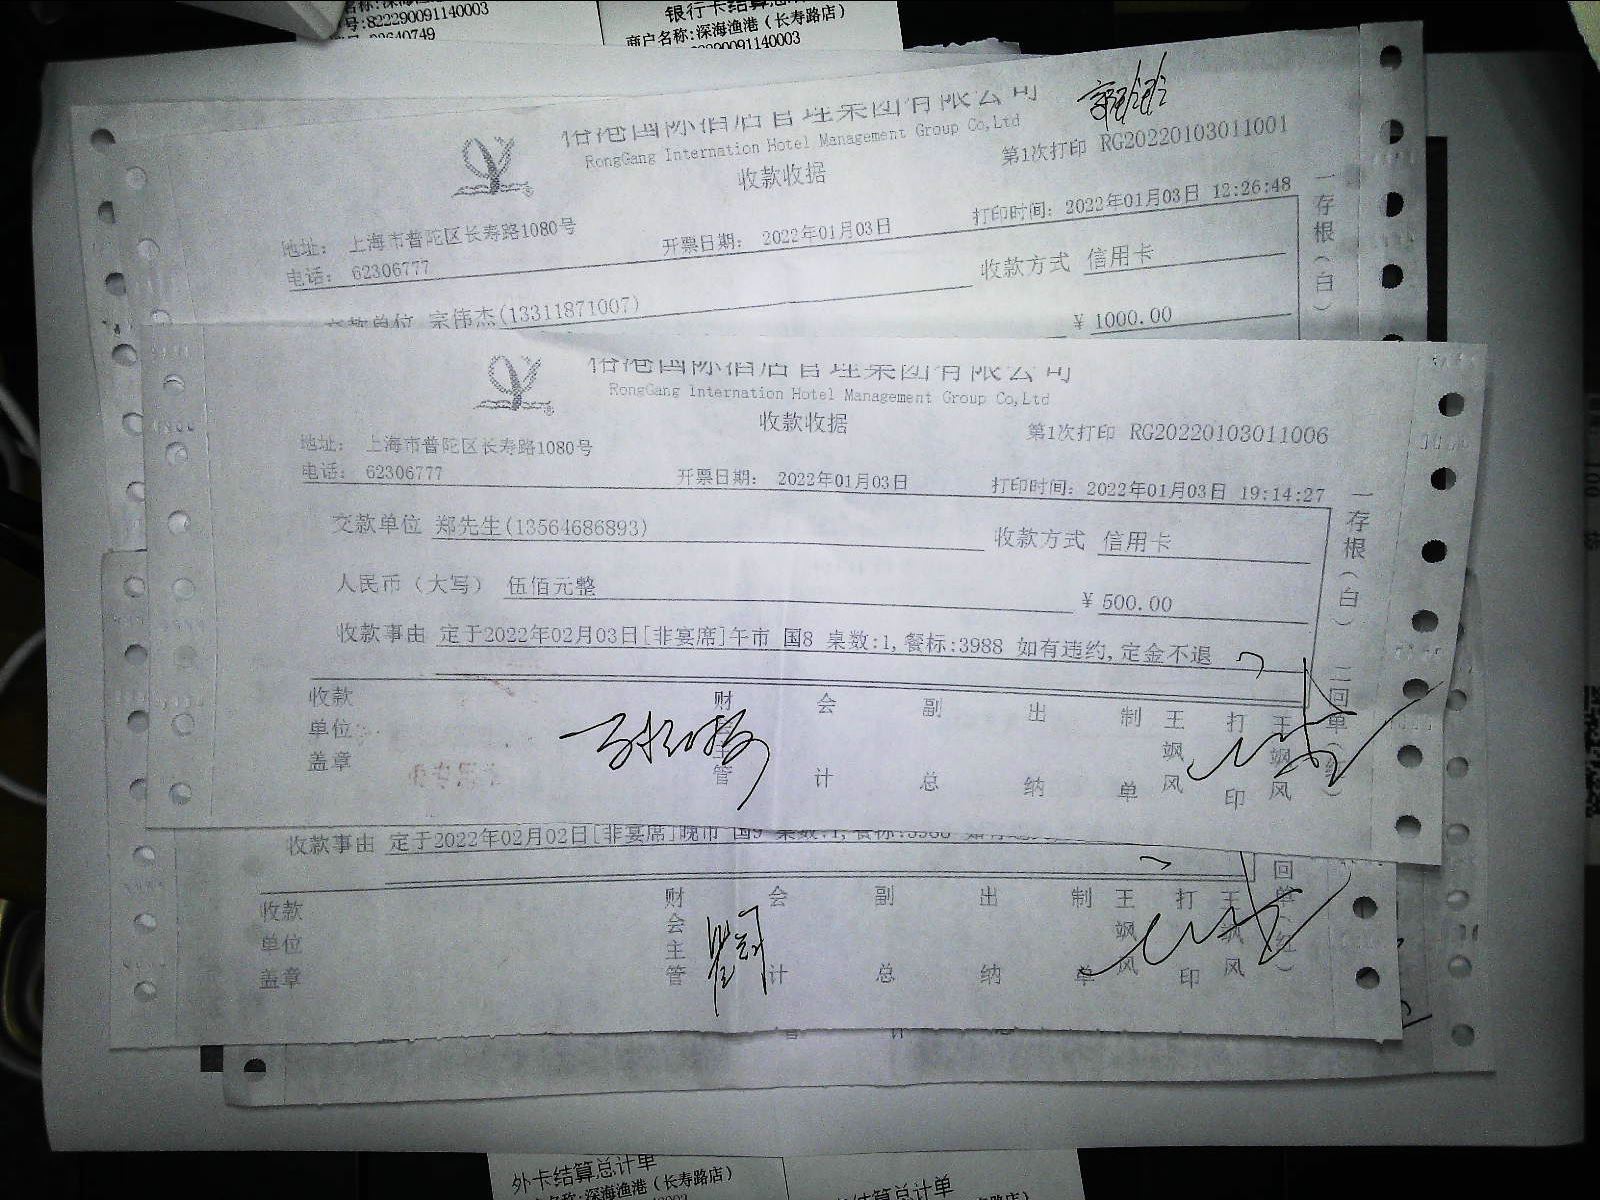 号:822290091140003
银行卡结算总
商户名称:深海渔港（长寿路店）
RongGang Internation Hotel Management Group Co,Ltd
收款收据
第1次打印 RG20220103011001
地址: 上海市普陀区长寿路1080号
电话: 62306777
开票日期: 2022年01月03日
打印时间: 2022年01月03日 12:26:48
交款单位 宗伟杰(13311871007)
收款方式 信用卡
¥ 1000.00
一存根(白)
RongGang Internation Hotel Management Group Co,Ltd
收款收据
第1次打印 RG20220103011006
地址: 上海市普陀区长寿路1080号
电话: 62306777
开票日期: 2022年01月03日
打印时间: 2022年01月03日 19:14:27
交款单位 郑先生(13564686893)
收款方式 信用卡
人民币（大写） 伍佰元整
¥ 500.00
收款事由 定于2022年02月03日[非宴席]午市 国8 桌数:1,餐标:3988 如有违约,定金不退
一存根(白) 二回单(红)
收款单位盖章
财 管 会计 副总 出纳 制单 王飒风 打印 王飒风
收款事由 定于2022年02月02日[非宴席]晚市 国9 桌数:1,餐标:3988
回单(红)
收款单位盖章
财会主管 会计 副总 出纳 制单 王飒风 打印 王飒风
外卡结算总计单
名称:深海渔港（长寿路店）
结算总计单